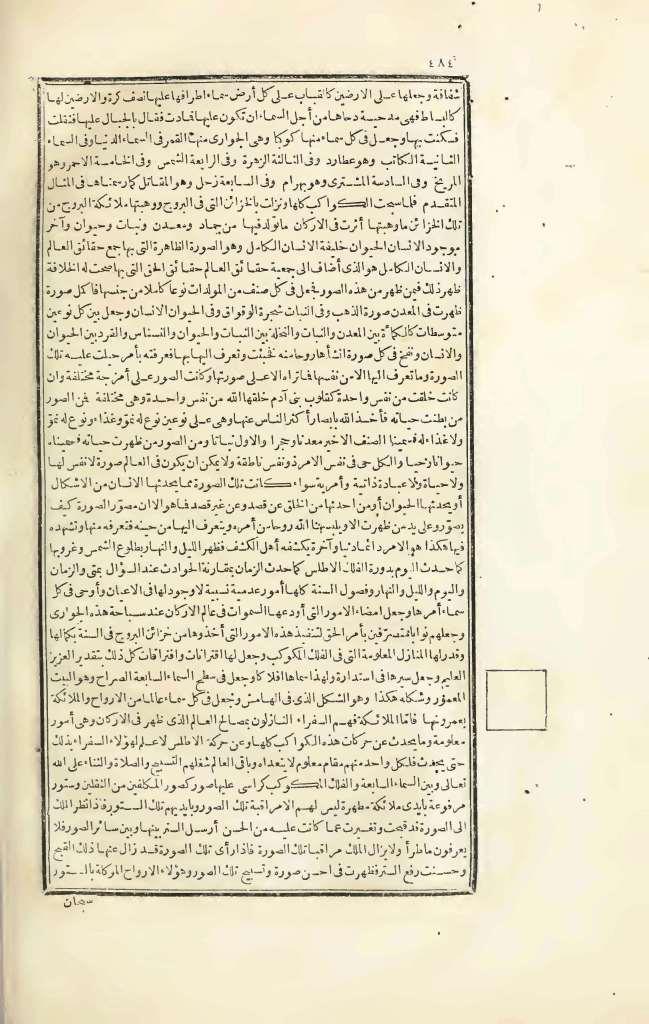 ٤٨٤
شفافة وجعلها على الارضين كالقباب على كل أرض سماء أطرافها عليها نصف كرة والارضين لها
كالبساط فهى مدحية دحاها من أجل السماء ان تكون عليها فادت فقال بالجبال عليها فثقلت
فسكنت بها وجعل فى كل سماء منها كوكبا وهى الجوارى منها القمر فى السماء الدنيا وفى السماء
الثانية الكاتب وهو عطارد وفى الثالثة الزهرة وفى الرابعة الشمس وفى الخامسة الاحمر وهو
المريخ وفى السادسة المشترى وهو بهرام وفى السابعة زحل وهو المقاتل كما رسمناها فى المثال
المتقدم فلما سبحت الكواكب كلها ونزلت بالخزائن التى فى البروج ووهبتها ملائكة البروج من
تلك الخزائن ما وهبتها أثرت فى الاركان ما تولد فيها من جماد ومعدن ونبات وحيوان وآخر
موجود الانسان الحيوان خليفة الانسان الكامل وهو الصورة الظاهرة التى بها جمع حقائق العالم
والانسان الكامل هو الذى أضاف الى جمعية حقائق العالم حقائق الحق التى بها صحت له الخلافة
ظهر ذلك فيمن ظهر من هذه الصور فجعل فى كل صنف من المولدات نوعا كاملا من جنسها فاكمل صورة
ظهرت فى المعدن صورة الذهب وفى النبات شجرة الوقواق وفى الحيوان الانسان وجعل بين كل نوعين
متوسطات كالكمأة بين المعدن والنبات والنخلة بين النبات والحيوان والنسناس والقرد بين الحيوان
والانسان ونفخ فى كل صورة انشأها روحا منه فحييت وتعرف اليها بها فعرفته بأمر جبلت عليه تلك
الصورة وما تعرف اليها الا من نفسها فما تراه الا على صورتها وكانت الصور على أمزجة مختلفة وان
كانت خلقت من نفس واحدة كقلوب بنى آدم خلقها الله من نفس واحدة وهى مختلفة فمن الصور
من بطنت حياته فأخذ الله بأبصار أكثر الناس عنها وهى على نوعين نوع له نمو وغذاء ونوع له نمو
ولا غذاء له فسمينا الصنف الاخير معدنا وحجرا والاول نباتا ومن الصور من ظهرت حياته فسميناه
حيوانا وحيا والكل حى فى نفس الامر ذو نفس ناطقة ولا يمكن ان يكون فى العالم صورة لا نفس لها
ولا حياة ولا عبادة ذاتية وأمرية سواء كانت تلك الصورة مما يحدثها الانسان من الاشكال
أو يحدثها الحيوان أو من أحدثها من الخلق عن قصد وعن غير قصد فما هو الا ان مصور الصورة كيف
تصورت وعلى يد من ظهرت الا ويلبسها الله روحا من أمره ويتعرف اليها من حينه فتعرفه منها وتشهده
فيها هكذا هو الامر دائما دنيا وآخرة يكشفه أهل الكشف فظهر الليل والنهار بطلوع الشمس وغروبها
كما حدث اليوم بدورة الفلك الاطلس كما حدث الزمان بمقارنة الحوادث عند السؤال بمتى والزمان
واليوم والليل والنهار وفصول السنة كلها أمور عدمية نسبية لا وجود لها فى الاعيان وأوحى فى كل
سماء أمرها وجعل امضاء الامور التى أودعها السموات فى عالم الاركان عند سباحة هذه الجوارى
وجعلهم نوابا متصرفين بأمر الحق لتنفيذ هذه الامور التى أخذوها من خزائن البروج فى السنة بكمالها
وقدر لها المنازل المعلومة التى فى الفلك المكوكب وجعل لها اقترانات وافتراقات كل ذلك بتقدير العزيز
العليم وجعل سيرها فى استدارة ولهذا سماها افلاكا وجعل فى سطح السماء السابعة الضراح وهو البيت
المعمور وشكله هكذا وهو الشكل الذى فى الهامش وجعل فى كل سماء عالما من الارواح والملائكة
يعمرونها فاما الملائكة فهم السفراء النازلون بمصالح العالم الذى ظهر فى الاركان وهى أمور
معلومة وما يحدث عن حركات هذه الكواكب كلها وعن حركة الاطلس لا علم لهؤلاء السفراء بذلك
حتى يحدث فلكل واحد منهم مقام معلوم لا يتعداه وباقى العالم شغلهم التسبيح والصلاة والثناء على الله
تعالى وبين السماء السابعة والفلك المكوكب كراسى عليها صور كصور المكلفين من الثقلين وستور
مرفوعة بأيدى ملائكة مطهرة ليس لهم الا مراقبة تلك الصور وبأيديهم تلك الستور فاذا نظر الملك
الى الصورة قد قبحت وتغيرت عما كانت عليه من الحسن أرسل الستر بينها وبين سائر الصور فلا
يعرفون ما طرأ ولا يزال الملك مراقبا تلك الصورة فاذا رأى تلك الصورة قد زال عنها ذلك القبح
وحسنت رفع الستر فظهرت فى احسن صورة وتسبيح تلك الصور وهؤلاء الارواح الموكلة بالستور
سبحان